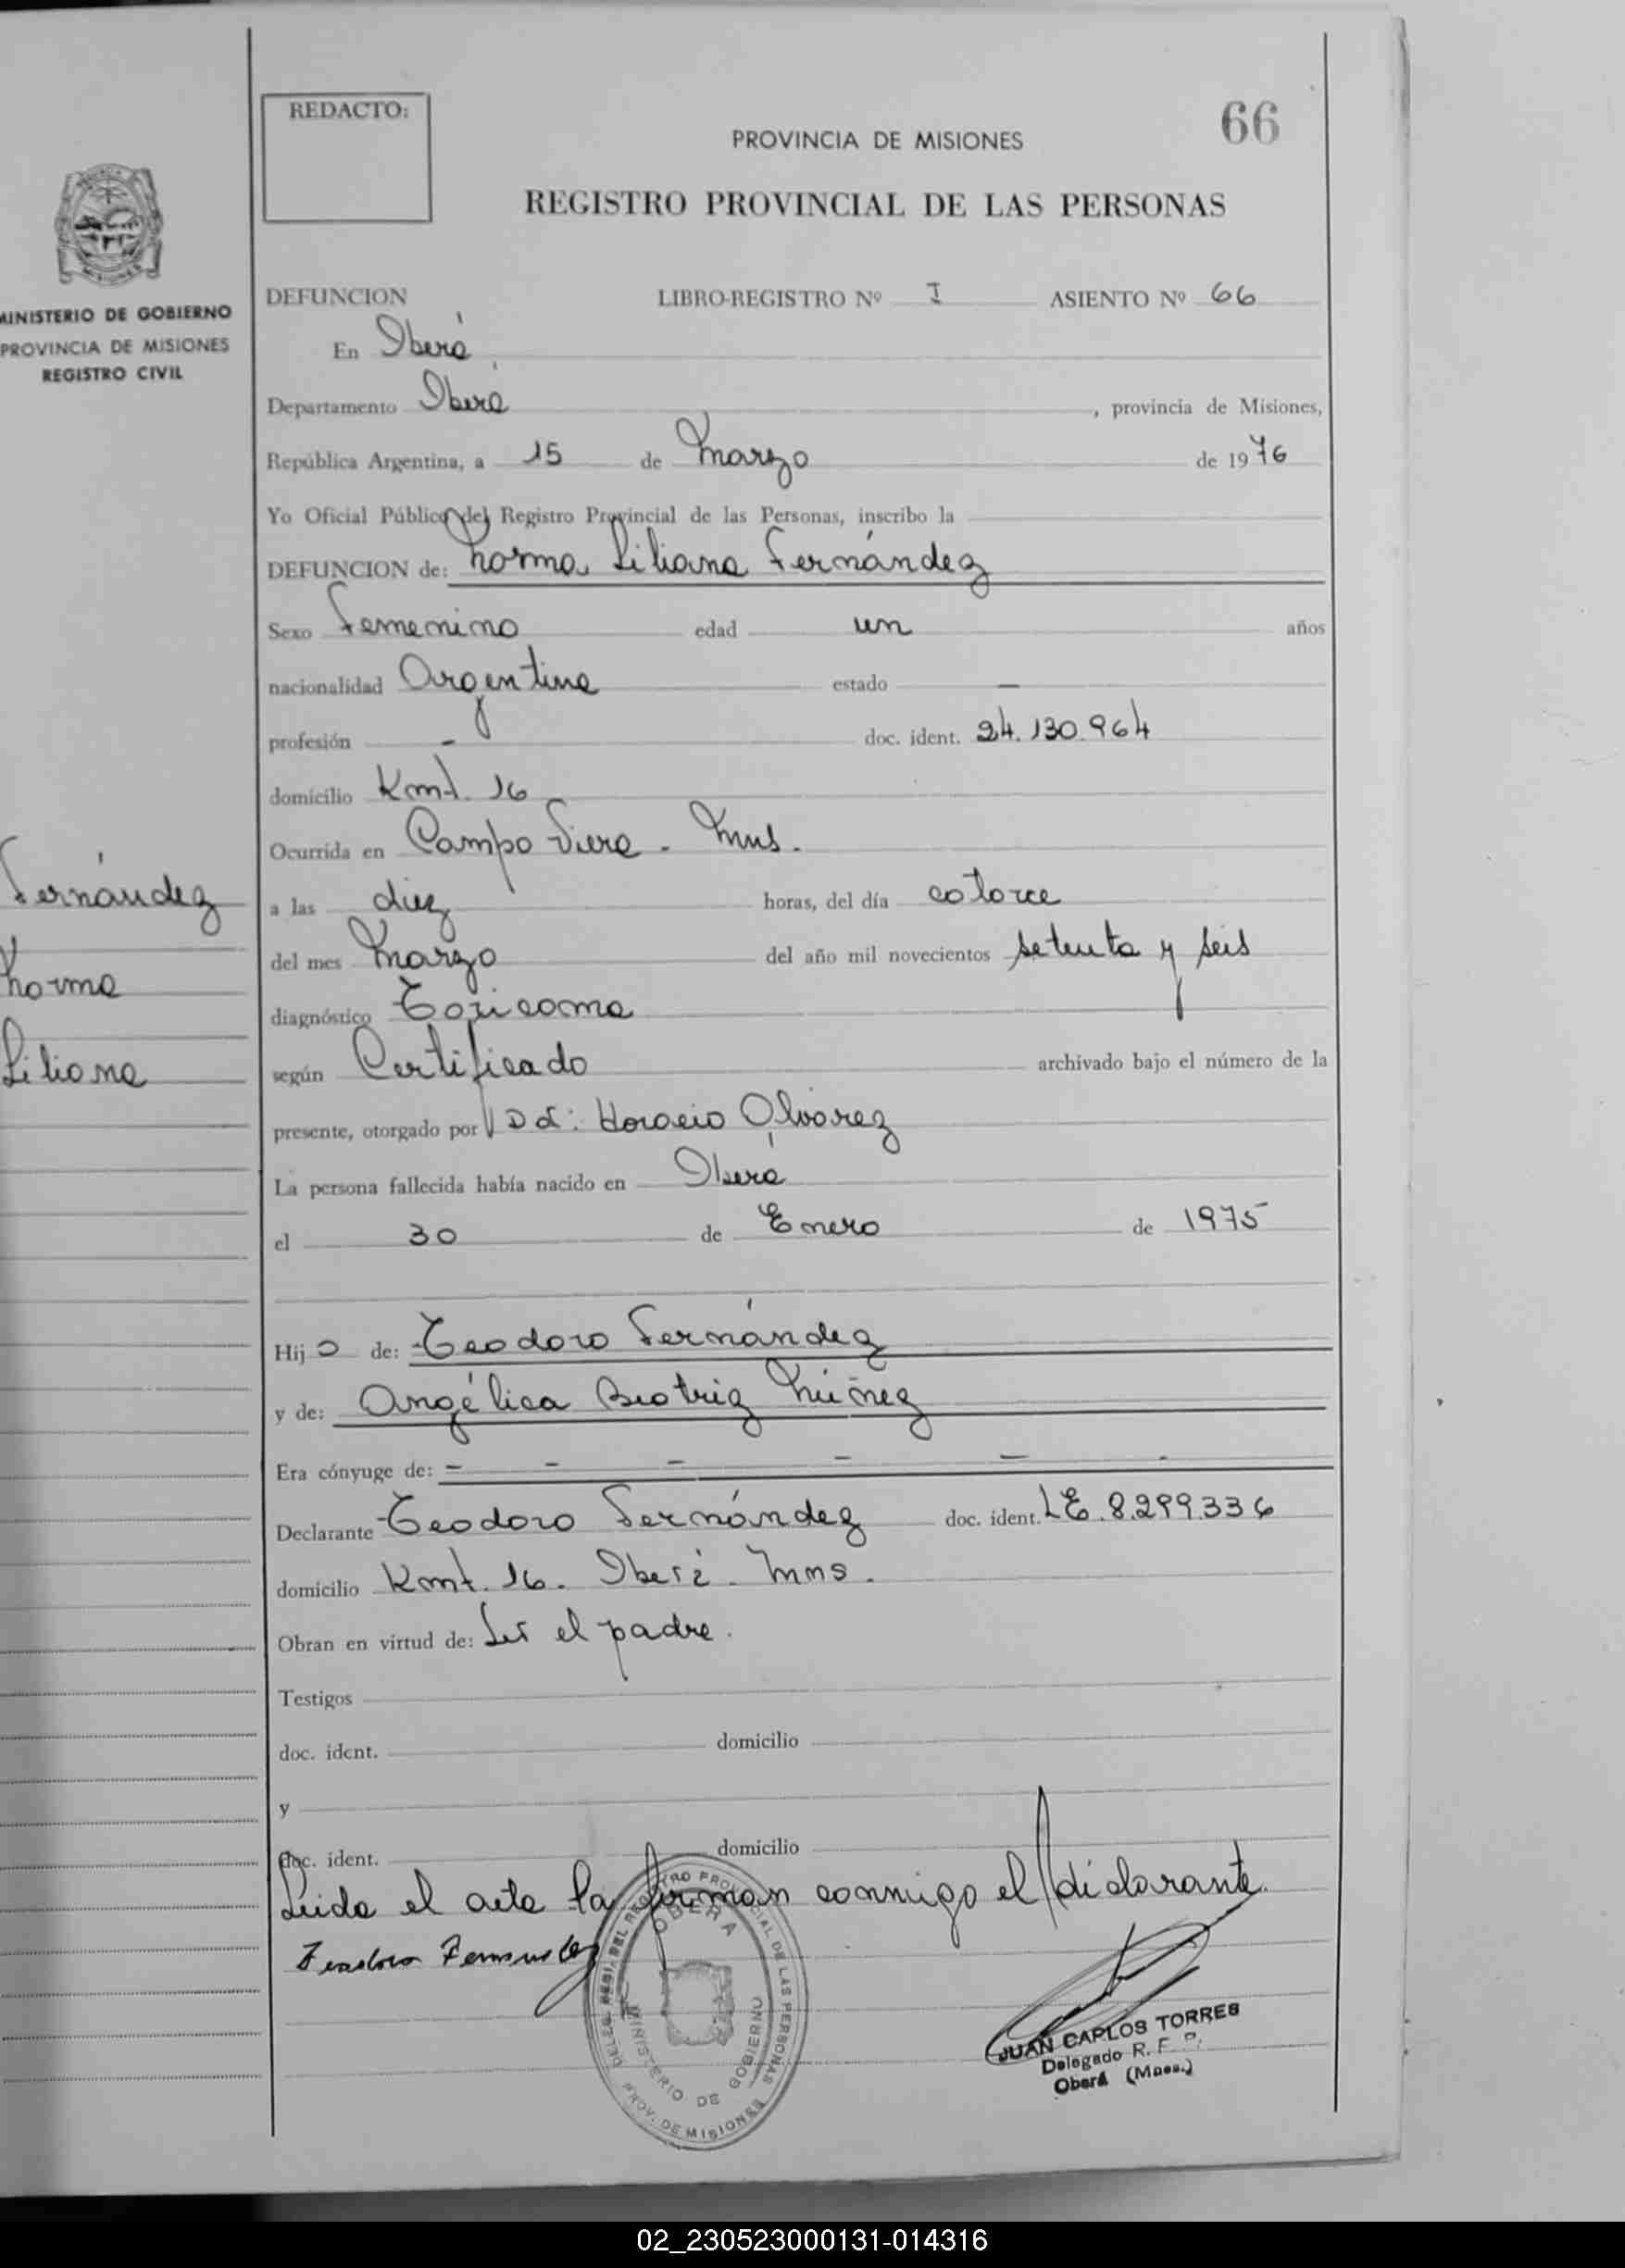 REDACTO:
66
PROVINCIA DE MISIONES
REGISTRO PROVINCIAL DE LAS PERSONAS
MINISTERIO DE GOBIERNO
PROVINCIA DE MISIONES
REGISTRO CIVIL
DEFUNCION LIBRO-REGISTRO Nº I ASIENTO Nº 66
En Oberá
Departamento Oberá, provincia de Misiones,
República Argentina, a 15 de Marzo de 1976
Yo Oficial Público del Registro Provincial de las Personas, inscribo la
DEFUNCION de: Norma Liliana Fernández
Sexo Femenino edad un años
nacionalidad Argentina estado —
profesión - doc. ident. 24.130.964
domicilio Kmt. 16
Ocurrida en Campo Viera - Mns.
Fernández
Norma
Liliana
a las diez horas, del día catorce
del mes Marzo del año mil novecientos setenta y seis
diagnóstico Toxicoma
según Certificado archivado bajo el número de la
presente, otorgado por Dr: Horacio Alvarez
La persona fallecida había nacido en Oberá
el 30 de Enero de 1975
Hijo de: Teodoro Fernández
y de: Angélica Beatriz Núñez
Era cónyuge de: - - - - - -
Declarante Teodoro Fernández doc. ident. LE.8.299.336
domicilio Kmt. 16. Oberá - Mns.
Obran en virtud de: Ser el padre.
Testigos
doc. ident. domicilio
y
doc. ident. domicilio
Leida el acta la firman conmigo el declarante.
Teodoro Fernandez
DEL REGISTRO PROVINCIAL DE LAS PERSONAS
OBERA
MINISTERIO DE GOBIERNO
PROV. DE MISIONES
JUAN CARLOS TORRES
Delegado R. F. P.
Oberá (Mnes.)
02_230523000131-014316